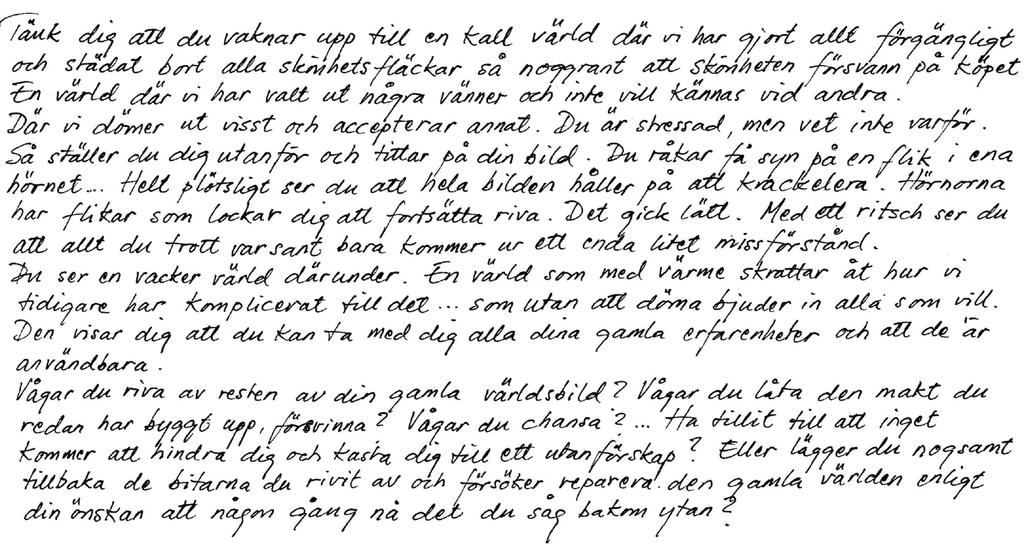 Tänk dig att du vaknar upp till en kall värld där vi har gjort allt förgängligt
och städat bort alla skönhetsfläckar så noggrant att skönheten försvann på köpet
En värld där vi har valt ut några vänner och inte vill kännas vid andra.
Där vi dömer ut visst och accepterar annat. Du är stressad, men vet inte varför.
Så ställer du dig utanför och tittar på din bild. Du råkar få syn på en flik i ena
hörnet... Helt plötsligt ser du att hela bilden håller på att krackelera. Hörnorna
har flikar som lockar dig att fortsätta riva. Det gick lätt. Med ett ritsch ser du
att allt du trott var sant bara kommer ur ett enda litet missförstånd.
Du ser en vacker värld därunder. En värld som med värme skrattar åt hur vi
tidigare har komplicerat till det... som utan att döma bjuder in alla som vill.
Den visar dig att du kan ta med dig alla dina gamla erfarenheter och att de är
användbara.
Vågar du riva av resten av din gamla världsbild? Vågar du låta den makt du
redan har byggt upp, försvinna? Vågar du chansa?... Ha tillit till att inget
kommer att hindra dig och kasta dig till ett utanförskap? Eller lägger du nogsamt
tillbaka de bitarna du rivit av och försöker reparera den gamla världen enligt
din önskan att någon gång nå det du såg bakom ytan?